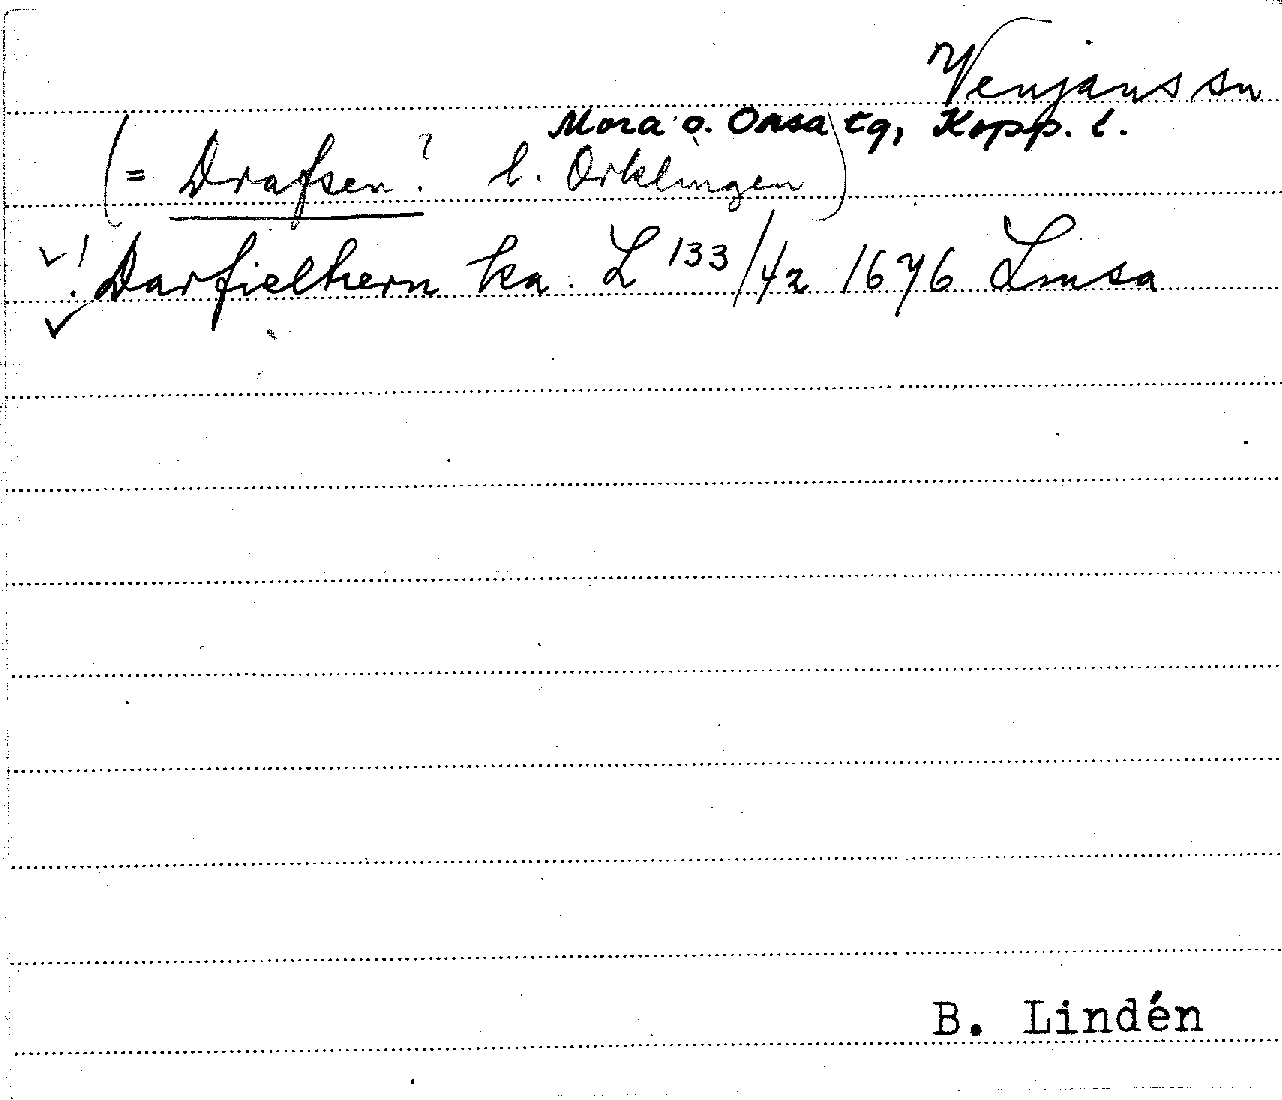 Venjans sn
Mora o. Orsa tg, Kopp. l.
(= Drafsen? l. Orklingen)
! Darfielhern ka. L 133/42 1676 Lmsa
B. Lindén